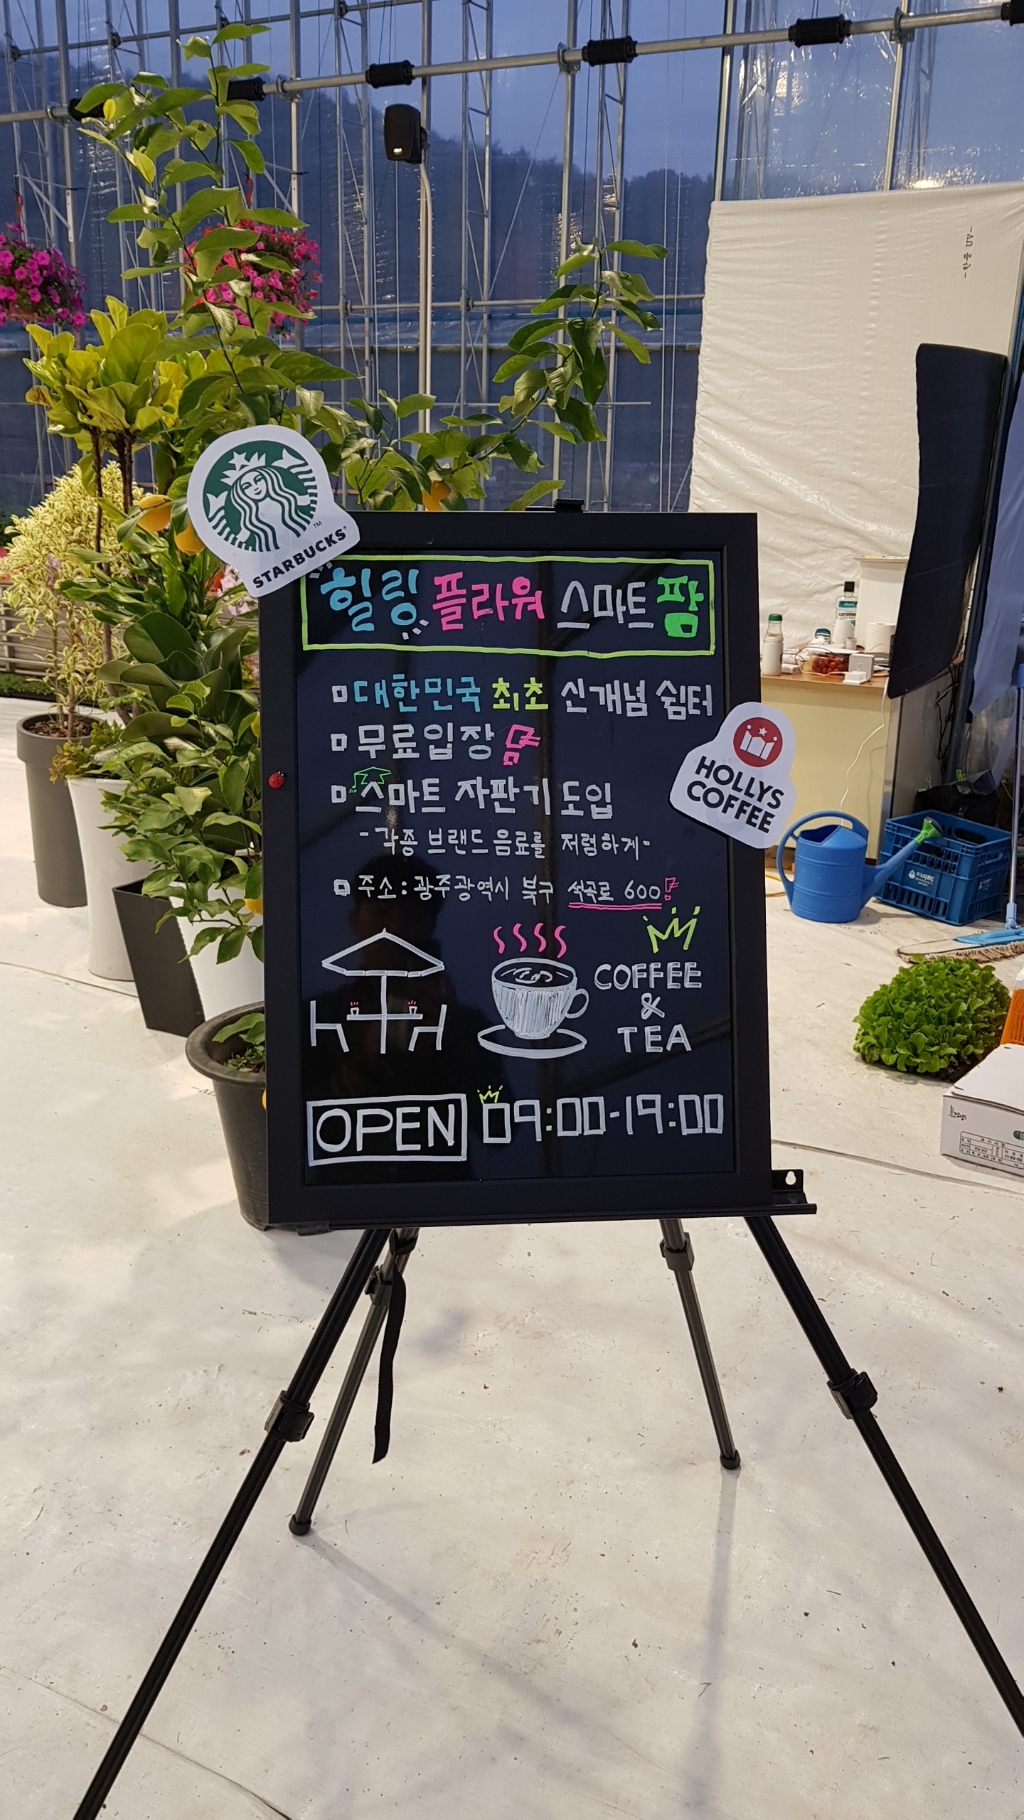 STARBUCKS
힐링 플라워 스마트 팜
대한민국 최초 신개념 쉼터
무료입장
HOLLYS
COFFEE
스마트 자판기 도입
-각종 브랜드 음료를 저렴하게-
주소: 광주광역시 북구 석곡로 600
COFFEE
&
TEA
OPEN 09:00-19:00